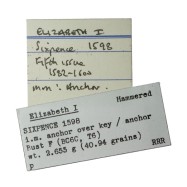 ELIZABETH I
Sixpence 1598
Fifth issue
1582-1600
m.m: Anchor.
Hammered
Elizabeth I
SIXPENCE 1598
i.m. anchor over key / anchor
Bust F (BC6C, T6)
wt. 2.653 g (40.94 grains)
F RRR